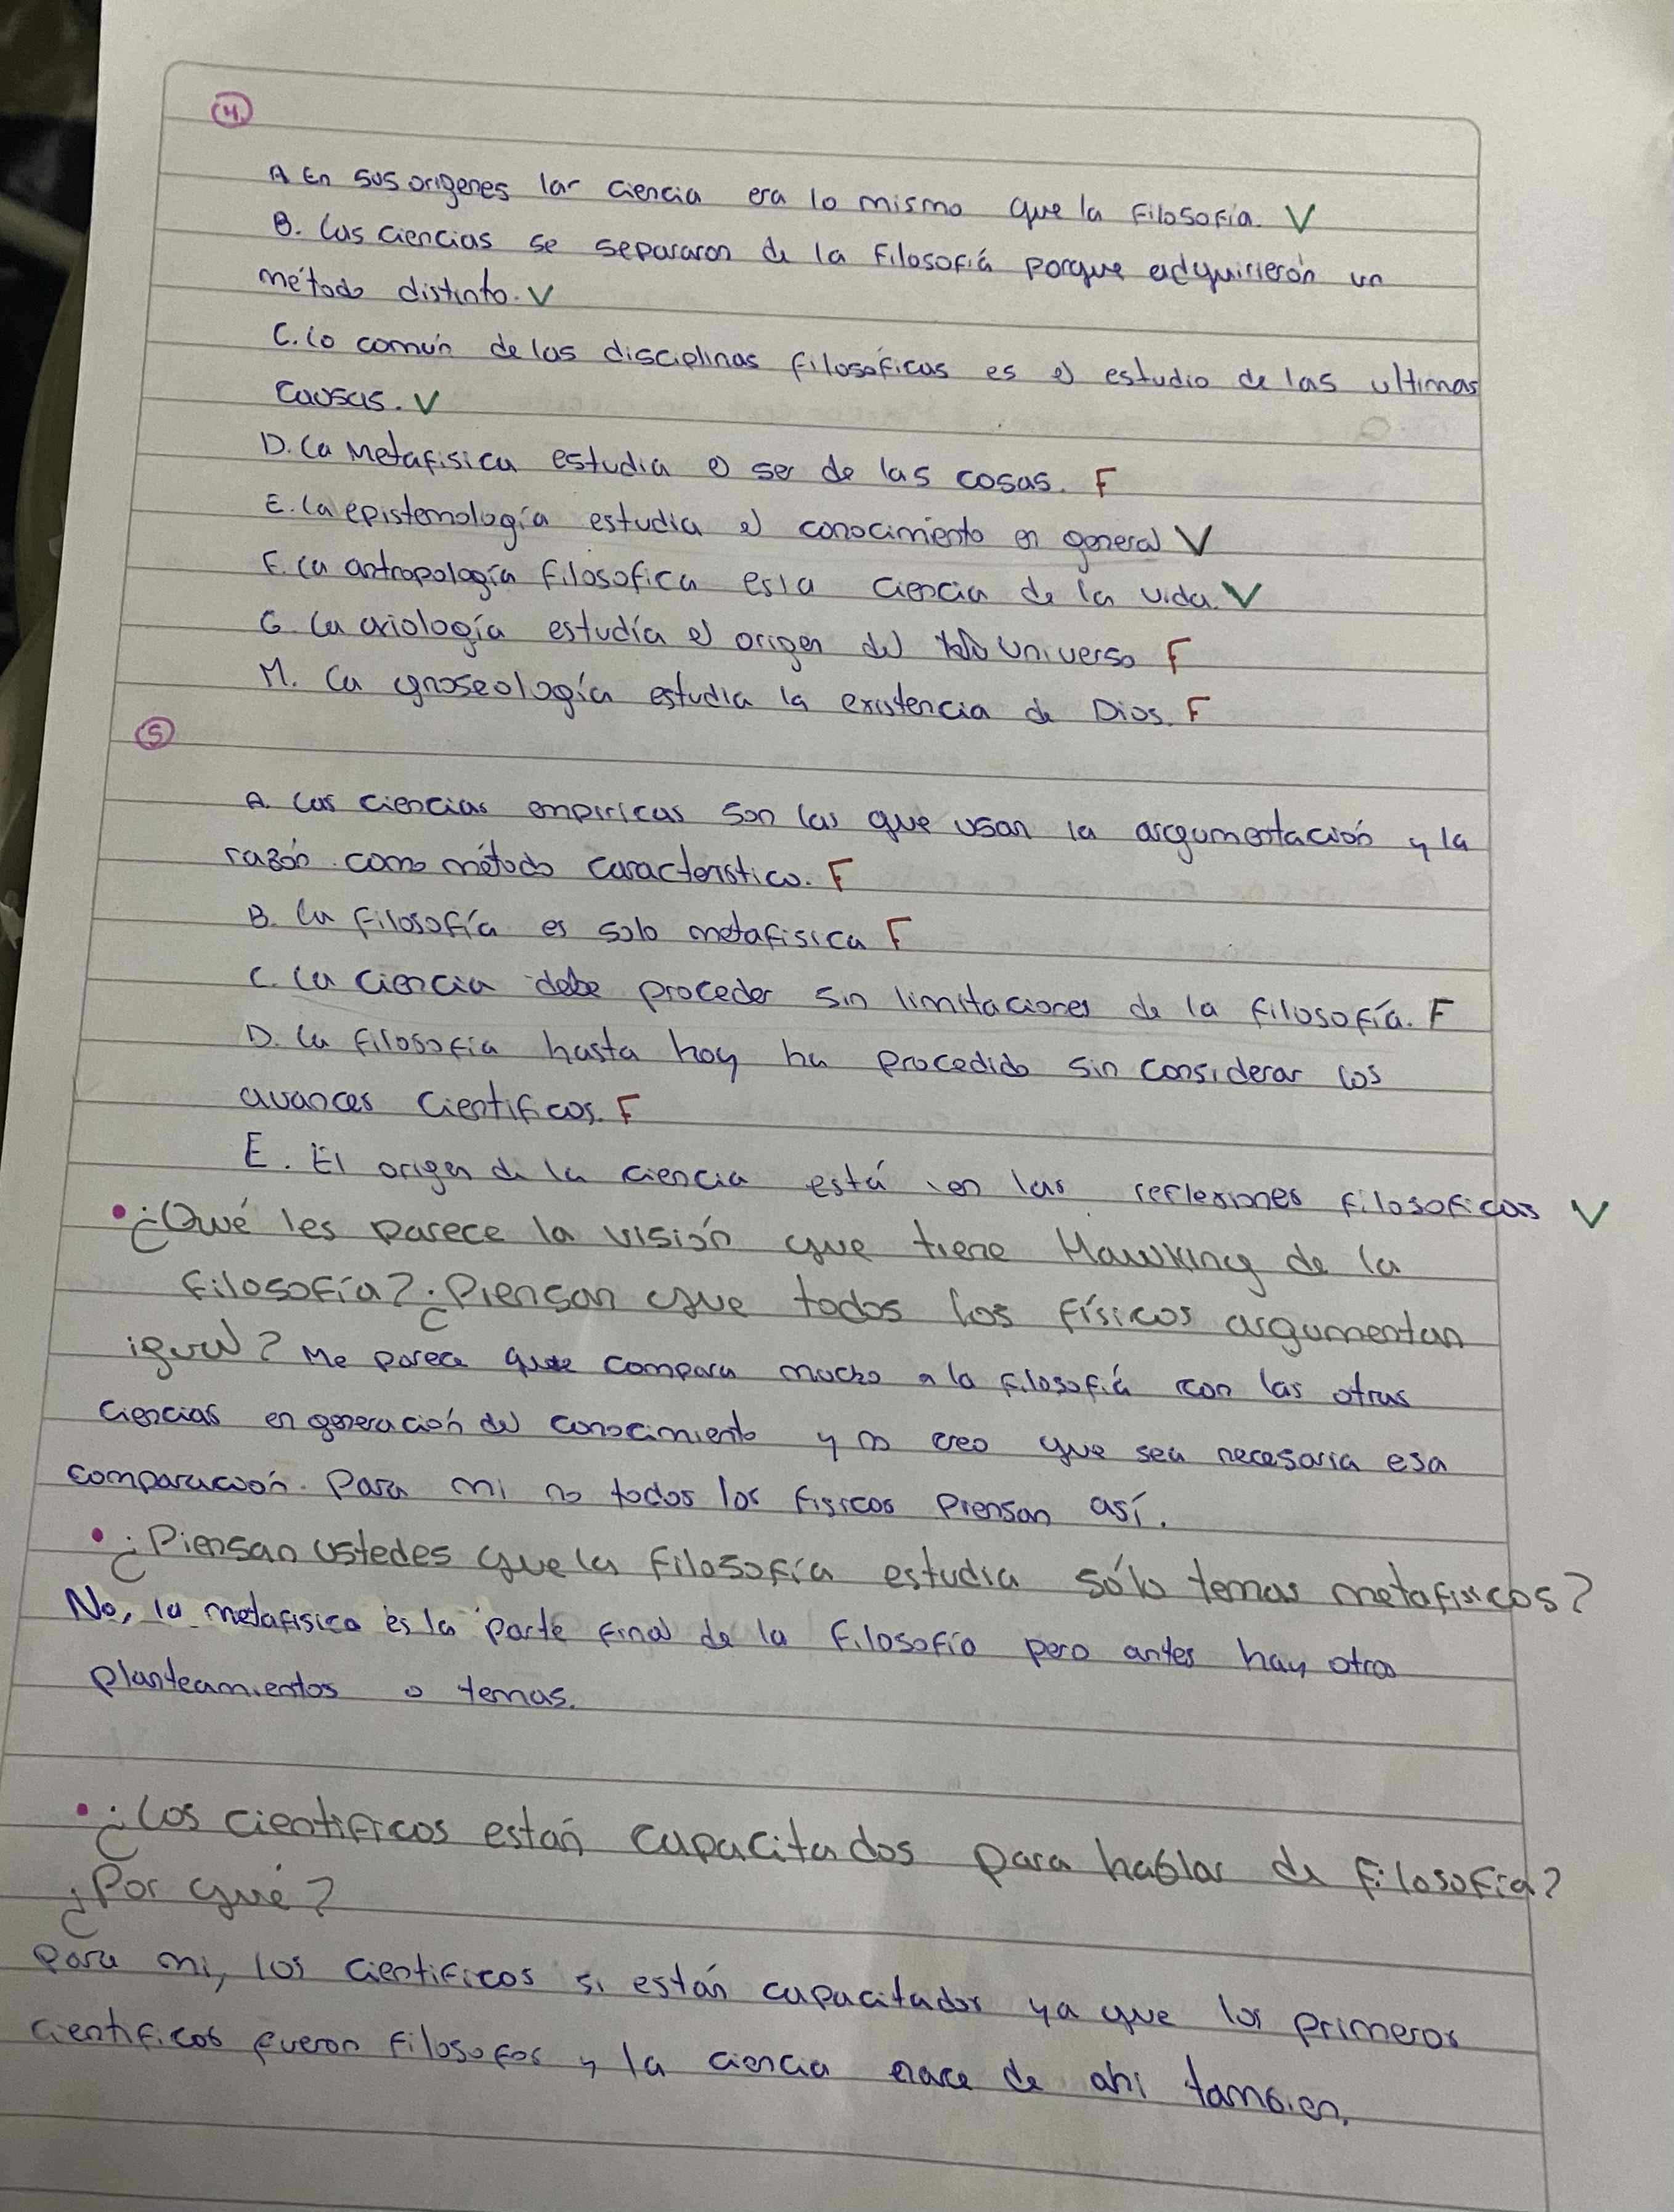 4.
A En sus origenes lar ciencia era lo mismo que la Filosofía. V
B. Las ciencias se separaron de la Filosofiá porque adquirierón un
método distinto. V
C. Lo común de las disciplinas filosóficas es el estudio de las ultimas
causas. V
D. La Metafisica estudia el ser de las cosas. F
E. La epistemología estudia el conocimiento en general V
F. La antropología filosofica es la ciencia de la vida. V
G. La axiología estudía el origen del universo F
H. La gnoseología estudia la existencia de Dios. F
5
A. Las ciencias empiricas son las que usan la argumentación y la
razón como método caracteristico. F
B. La Filosofía es solo metafisica F
C. La ciencia debe proceder sin limitaciones de la filosofía. F
D. La filosofía hasta hoy ha procedido sin considerar los
avances cientificos. F
E. El origen de la ciencia está en las reflexiones filosoficas V
• ¿Qué les parece la visión que tiene Hawking de la
filosofía? ¿Piensan que todos los físicos argumentan
igual? Me parece que compara mucho a la filosofiá con las otras
ciencias en generación del conocimiento y no creo que sea necesaria esa
comparación. Para mi no todos los fisicos piensan así.
• ¿Piensan ustedes que la filosofía estudia sólo temas metafisicos?
No, la metafisica es la parte final de la filosofía pero antes hay otros
planteamientos o temas.
• ¿Los cientificos están capacitados para hablar de filosofía?
¿Por qué?
Para mi, los cientificos si están capacitados ya que los primeros
cientificos fueron filosofos y la ciencia nace de ahi tambien.